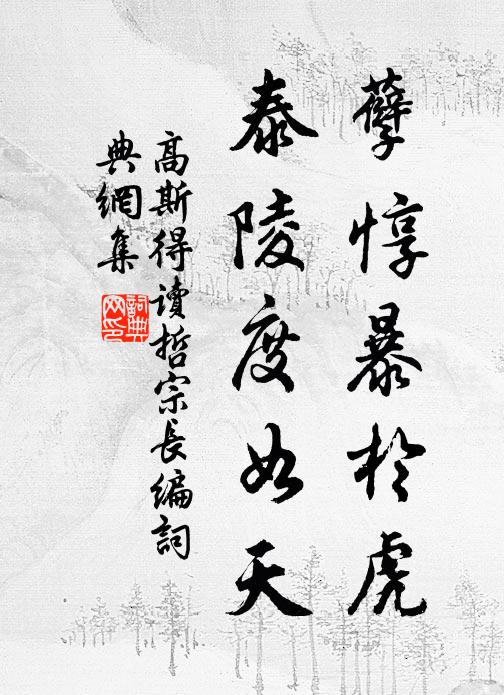 孽惇暴於虎
泰陵度如天
高斯得讀哲宗長編詞
典網集
詞典
网印